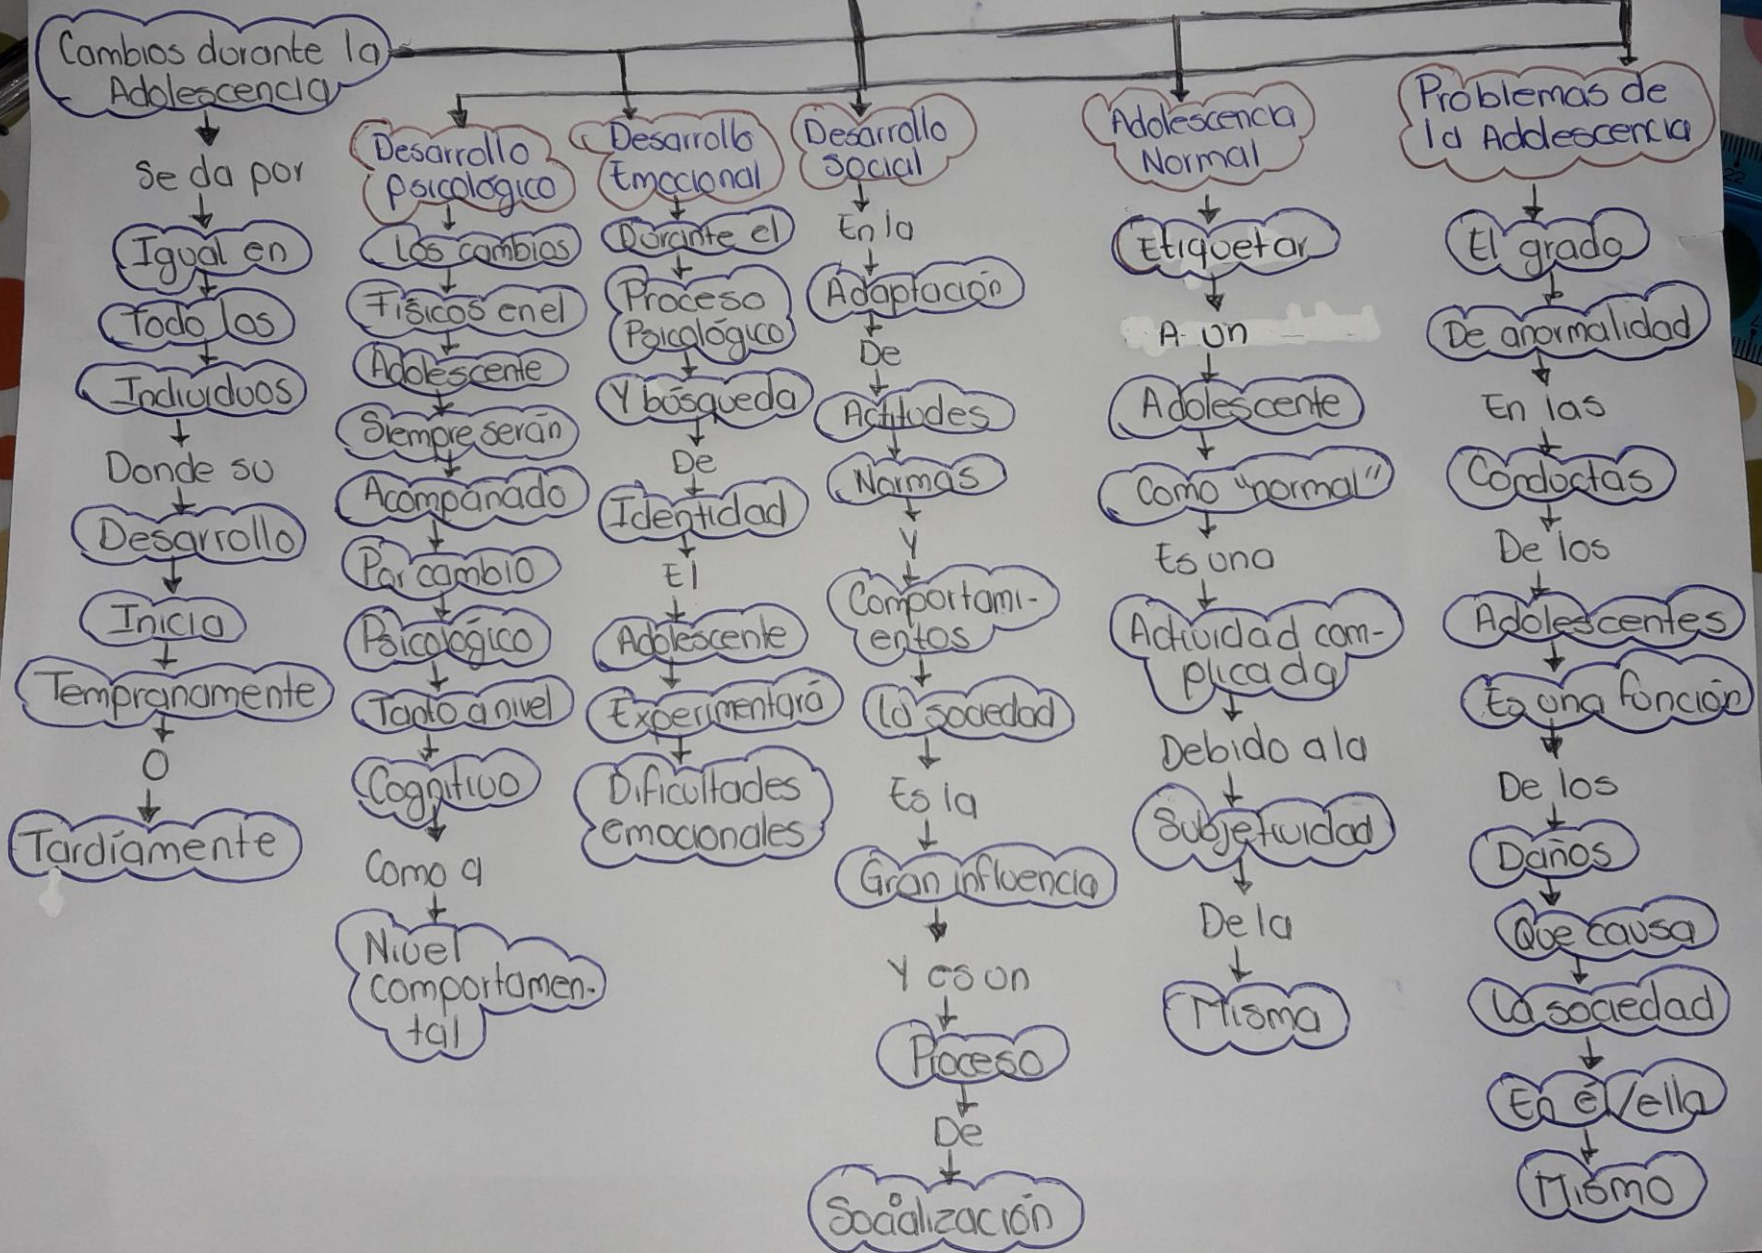 Cambios durante la
Adolescencia
Se da por
Igual en
Todo los
Individuos
Donde su
Desarrollo
Inicia
Tempranamente
O
Tardíamente
Desarrollo
Psicológico
Los cambios
Físicos en el
Adolescente
Siempre serán
Acompañado
Por cambio
Psicológico
Tanto a nivel
Cognitivo
Como a
Nivel
comportamen-
tal
Desarrollo
Emocional
Durante el
Proceso
Psicológico
Y búsqueda
De
Identidad
El
Adolescente
Experimentará
Dificultades
emocionales
Desarrollo
Social
En la
Adaptación
De
Actitudes
Normas
Y
Comportami-
entos
La sociedad
Es la
Gran influencia
Y es un
Proceso
De
Socialización
Adolescencia
Normal
Etiquetar
A un
Adolescente
Como "normal"
Es una
Actividad com-
plicada
Debido a la
Subjetividad
De la
Misma
Problemas de
la Adolescencia
El grado
De anormalidad
En las
Conductas
De los
Adolescentes
Es una función
De los
Daños
Que causa
La sociedad
En él/ella
Mismo